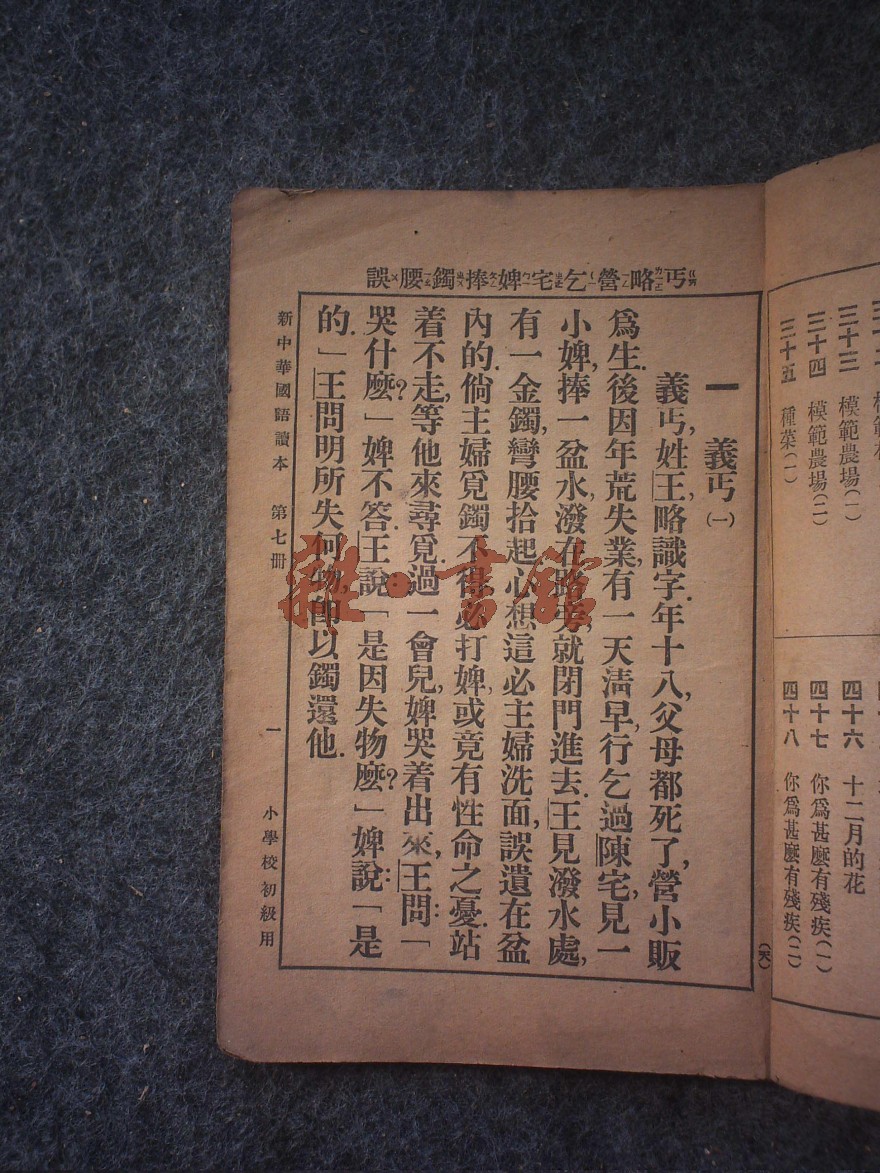 三十三 模範農場(一)
三十四 模範農場(二)
三十五 種菜(一)
四十六 十二月的花
四十七 你爲甚麼有殘疾(一)
四十八 你爲甚麼有殘疾(二)
丐略營乞宅婢捧鐲腰誤
一 義丐(一)
義丐,姓王,略識字.年十八,父母都死了,營小販
爲生.後因年荒失業,有一天淸早,行乞過陳宅,見一
小婢,捧一盆水,潑在路旁,就閉門進去.王見潑水處,
有一金鐲,彎腰拾起,心想這必主婦洗面,誤遺在盆
內的.倘主婦覓鐲不得,必打婢,或竟有性命之憂.站
着不走,等他來尋覓.過一會兒,婢哭着出來,王問:「
哭什麼?」婢不答.王說:「是因失物麼?」婢說:「是
的.」王問明所失何物,卽以鐲還他.
新中華國語讀本 第七冊
一
小學校初級用
雜·書館